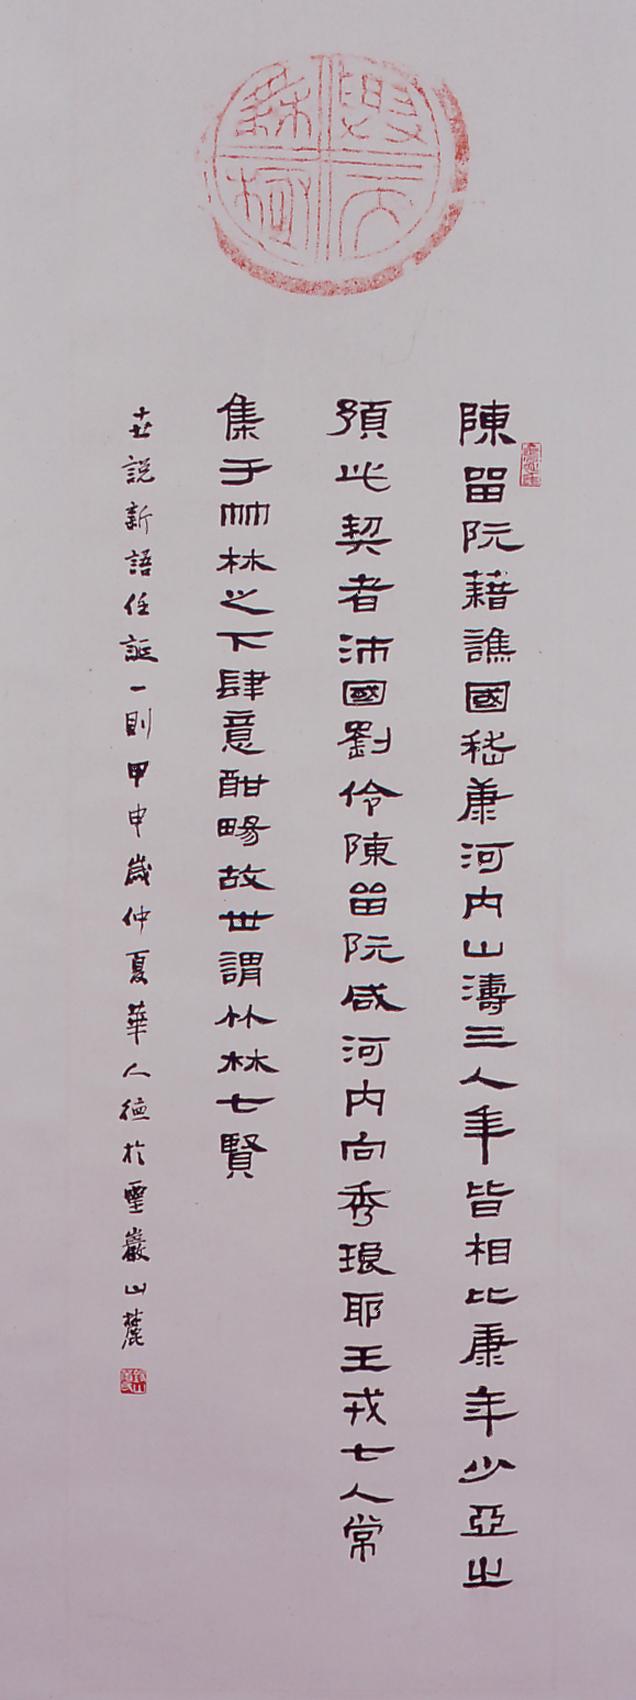 與天無極
陳留阮藉譙國嵇康河内山濤三人年皆相比康年少亞之
預此契者沛國劉伶陳留阮咸河内向秀琅耶王戎七人常
集于竹林之下肆意酣暢故世謂竹林七賢
世說新語任誕一則甲申歲仲夏華人德於靈巖山麓